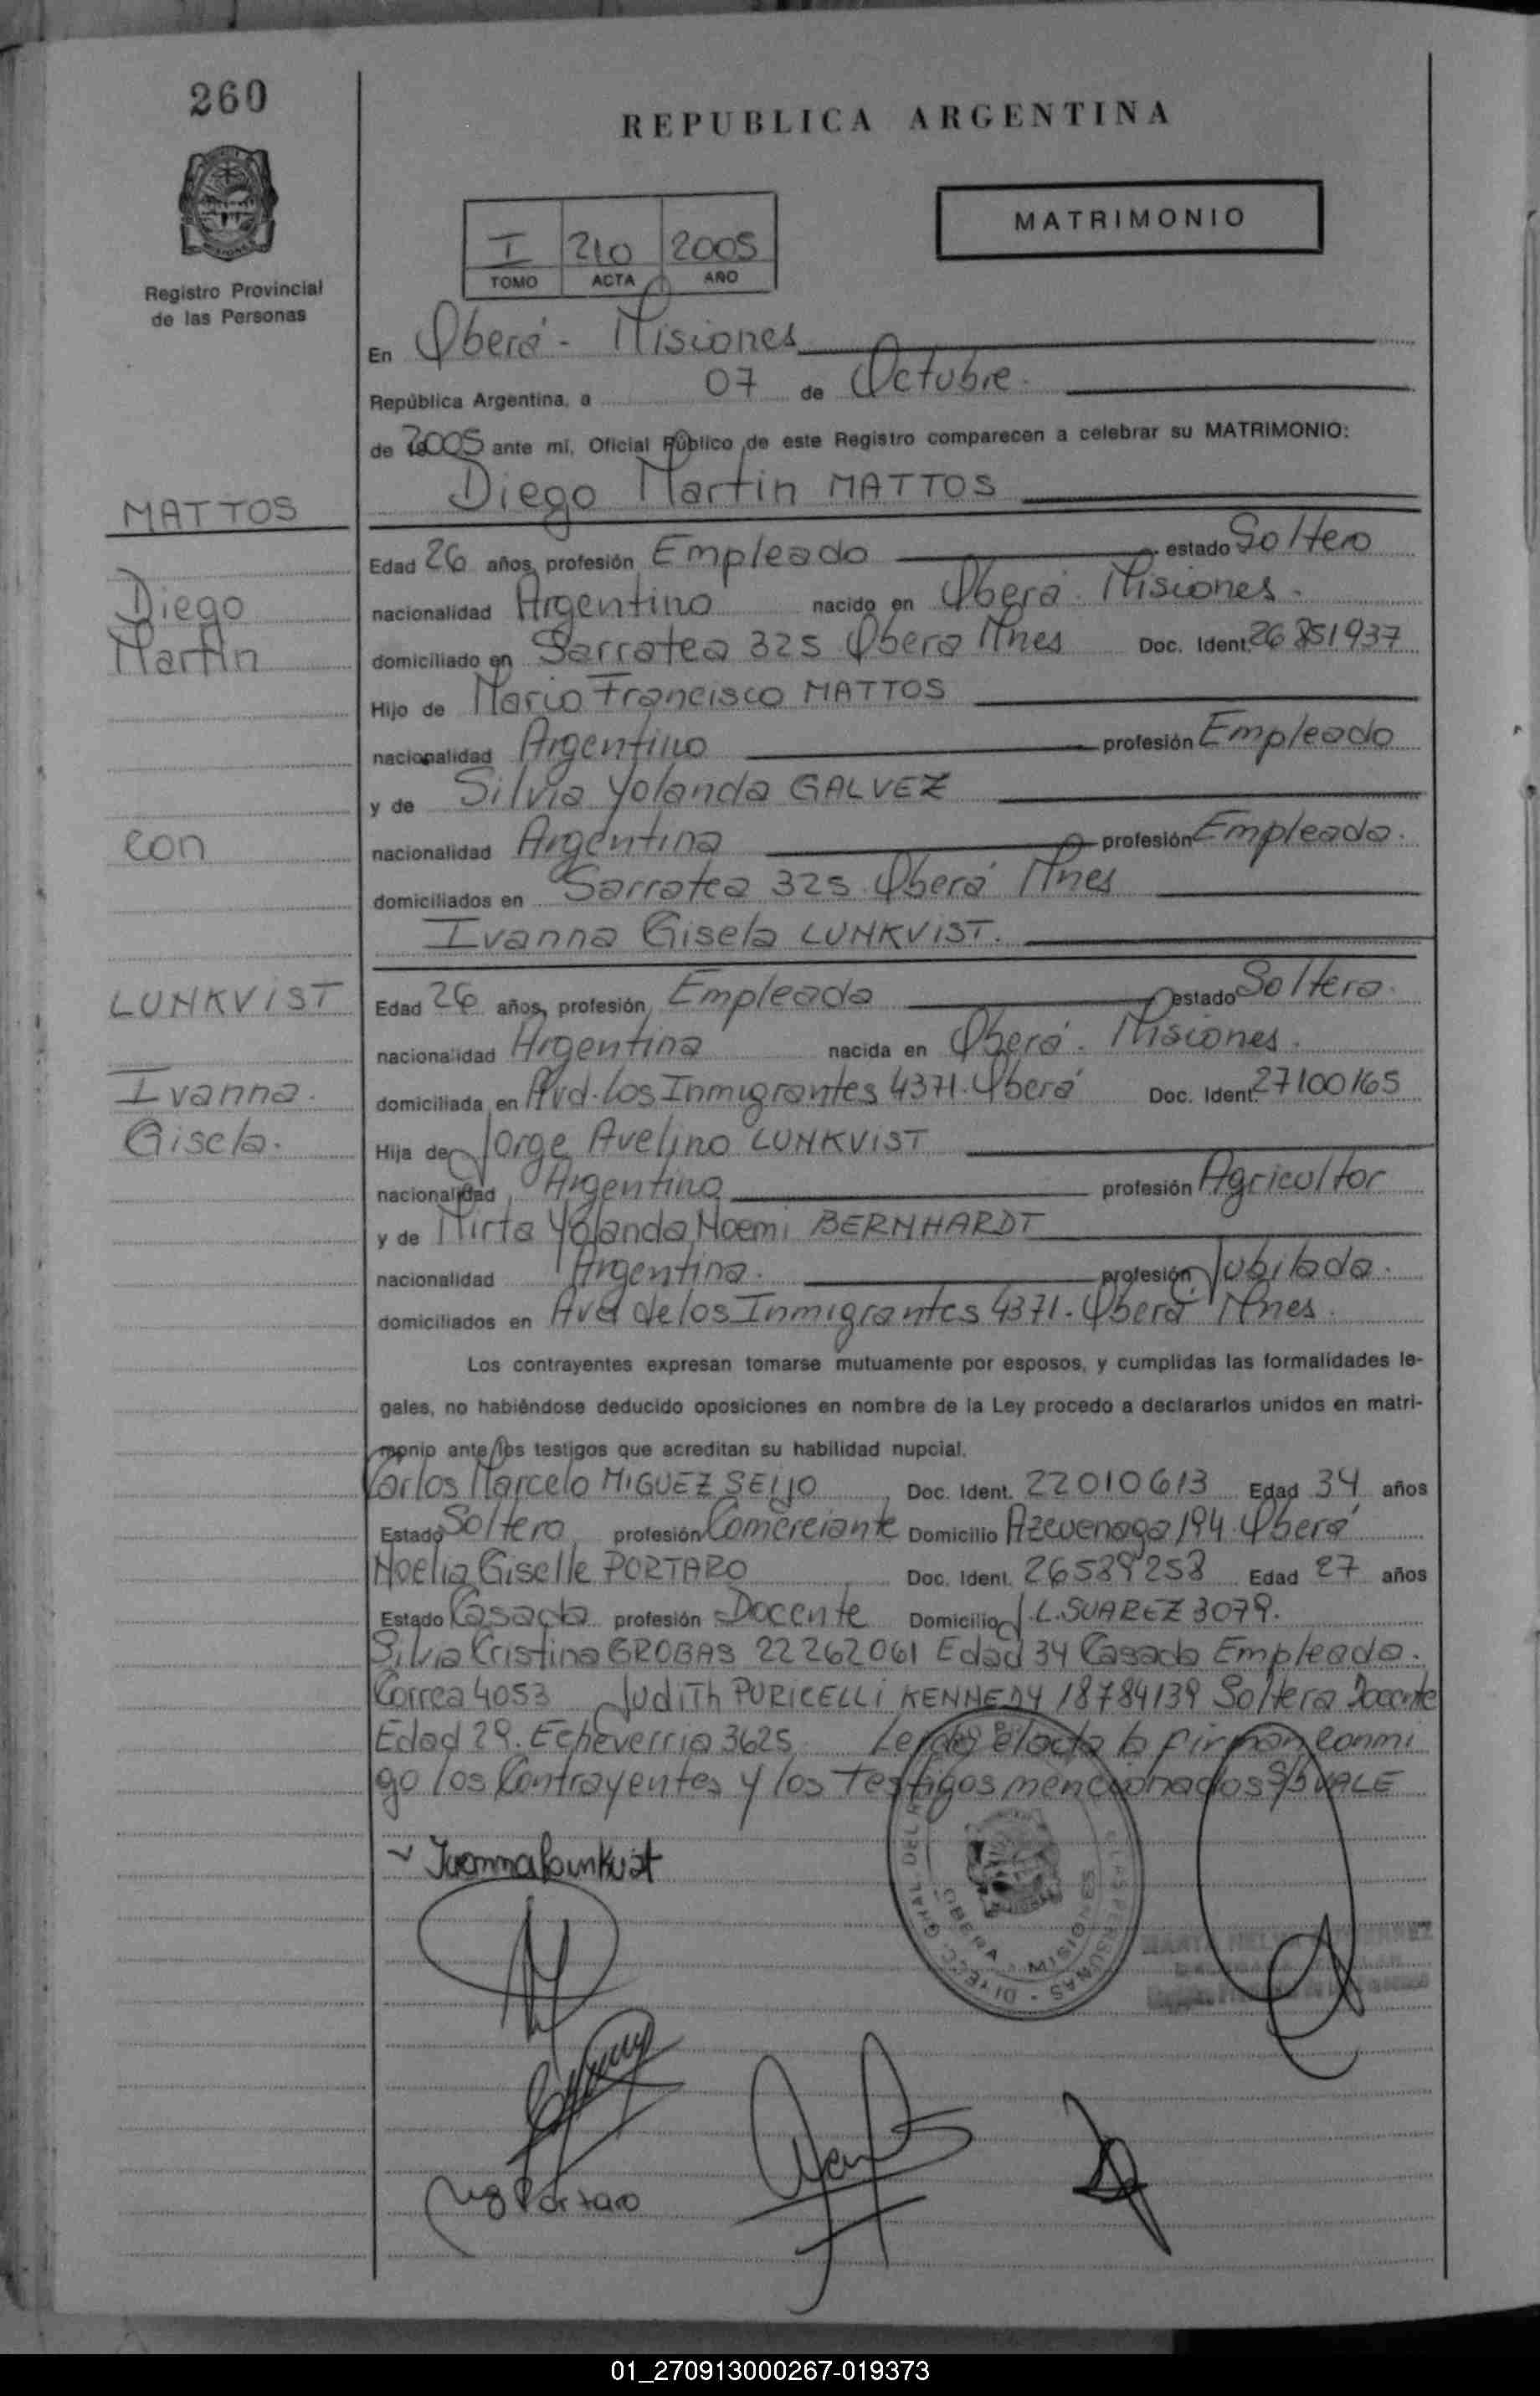 260
REPUBLICA ARGENTINA
MATRIMONIO
I 210 2005
TOMO ACTA AÑO
Registro Provincial
de las Personas
En Oberá - Misiones
República Argentina, a 07 de Octubre.
de 2005 ante mí, Oficial Público de este Registro comparecen a celebrar su MATRIMONIO:
Diego Martin MATTOS
MATTOS
Edad 26 años, profesión Empleado estado Soltero
Diego
nacionalidad Argentino nacido en Oberá. Misiones.
Martin
domiciliado en Sarratea 325 Obera Mnes Doc. Ident. 26851937
Hijo de Mario Francisco MATTOS
nacionalidad Argentino profesión Empleado
y de Silvia Yolanda GALVEZ
con
nacionalidad Argentina profesión Empleada.
domiciliados en Sarratea 325 Oberá Mnes
Ivanna Gisela LUNKVIST.
LUNKVIST
Edad 26 años, profesión Empleada estado Soltera.
nacionalidad Argentina nacida en Oberá. Misiones.
Ivanna.
domiciliada en Avd. los Inmigrantes 4371. Oberá Doc. Ident. 27100165
Gisela.
Hija de Jorge Avelino LUNKVIST
nacionalidad Argentino profesión Agricultor
y de Mirta Yolanda Noemi BERNHARDT
nacionalidad Argentina. profesión Jubilada.
domiciliados en Avd de los Inmigrantes 4371. Oberá Mnes.
Los contrayentes expresan tomarse mutuamente por esposos, y cumplidas las formalidades le-
gales, no habiéndose deducido oposiciones en nombre de la Ley procedo a declararlos unidos en matri-
monio ante los testigos que acreditan su habilidad nupcial.
Carlos Marcelo MIGUEZ SEIJO Doc. Ident. 22010613 Edad 34 años
Estado Soltero profesión Comerciante Domicilio Azcuenaga 194. Oberá
Noelia Giselle PORTARO Doc. Ident. 26589258 Edad 27 años
Estado Casada profesión Docente Domicilio J.L. SUAREZ 3079.
Silvia Cristina GROBAS 22262061 Edad 34 Casada Empleada.
Correa 4053 Judith PURICELLI KENNEDY 18784139 Soltera Docente
Edad 29. Echeverria 3625 Leida el acta la firman conmi
go los Contrayentes y los Testigos mencionados S/b VALE
Ivanna Lunkvist
OBERA MISIONES
Portaro
01_270913000267-019373